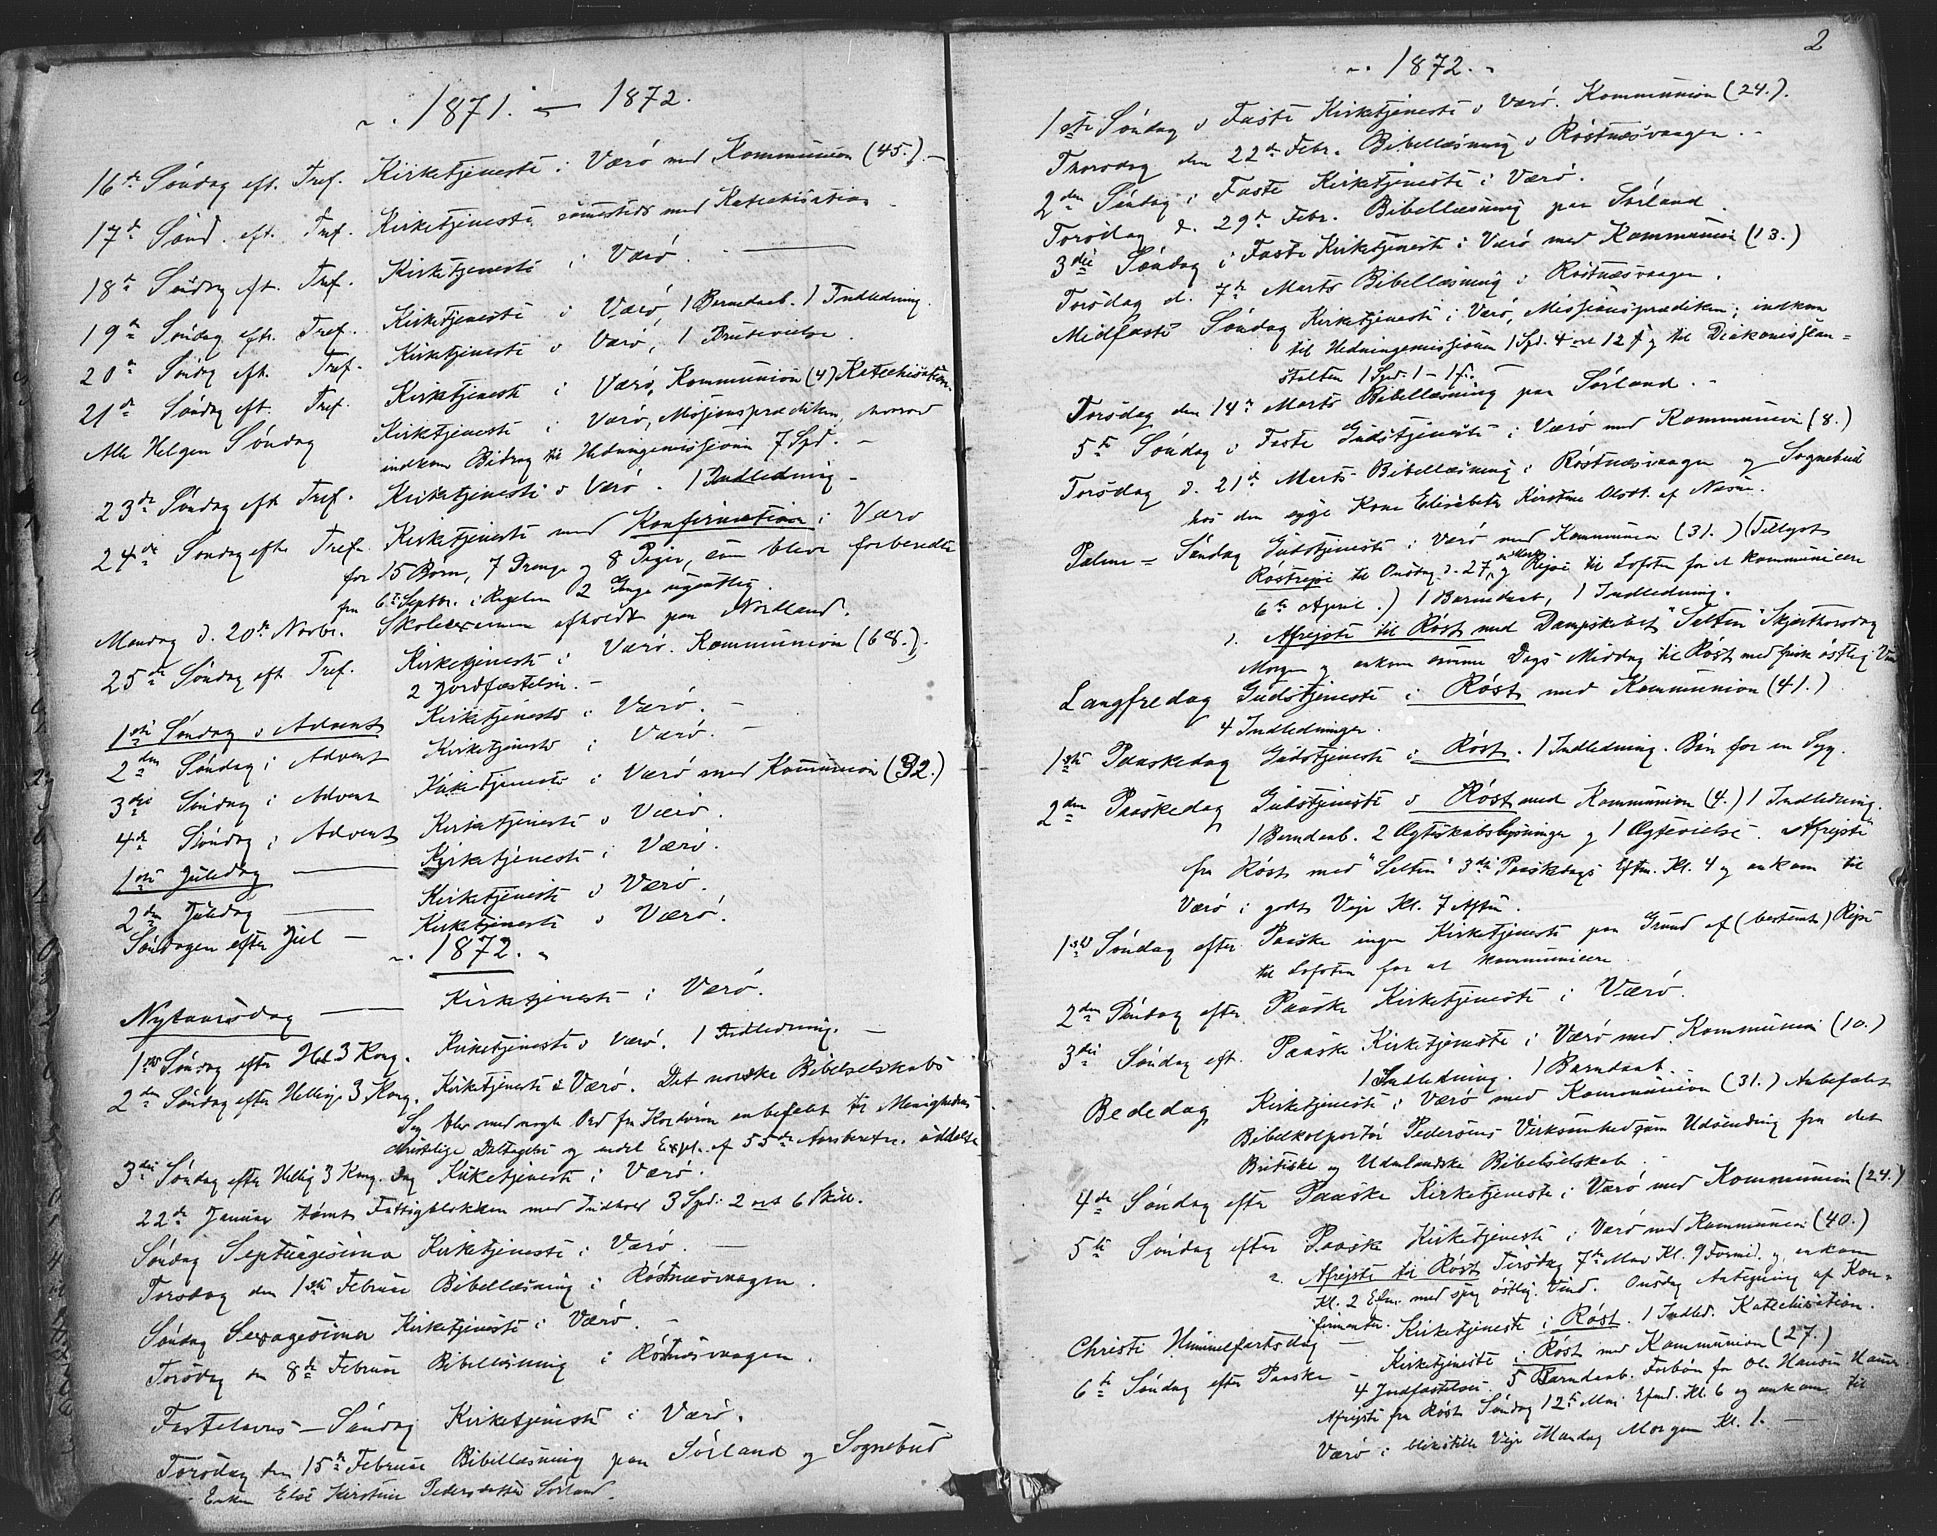 1871. — 1872.
16de Søndag eft. Tref. Kirketjeneste i Værø med Kommunion (45.) –
17de Sønd. eft. Tref. Kirketjeneste sammesteds med Katechisation
18de Søndag eft. Tref. Kirketjeneste i Værø.
19de Søndag eft. Tref. Kirketjeneste i Værø, 1 Barnedaab. 1 Indledning.
20de Søndag eft. Tref. Kirketjeneste i Værø, 1 Brudevielse.
21de Søndag eft. Tref. Kirketjeneste i Værø, Kommunion (4) Katechisation.
Alle Helgen Søndag Kirketjeneste i Værø, Missionsprædiken, hvorved
indkom Bidrag til Hedningemissionen 7 Spd. –
23de Søndag eft Tref. Kirketjeneste i Værø. 1 Indledning –
24de Søndag efter Tref. Kirketjeneste med Konfirmation i Værø
for 15 Børn, 7 Drenge og 8 Piger, som bleve forberedte
fra 6te Septbr. i Regelen 2 Gange ugentlig.
Mandag d. 20de Novbr. Skoleexamen afholdt paa Nordland.
25de Søndag eft Tref. Kirketjeneste i Værø. Kommunion (68.)
2 Jordfæstelser. –
1ste Søndag i Advent Kirketjeneste i Værø. –
2den Søndag i Advent Kirketjeneste i Værø. –
3die Søndag i Advent Kirketjeneste i Værø med Kommunion (32.)
4de Søndag i Advent Kirketjeneste i Værø.
1ste Juledag Kirketjeneste i Værø.
2den Juledag Kirketjeneste i Værø.
Søndagen efter Jul – Kirketjeneste i Værø.
1872.
Nytaarsdag Kirketjeneste i Værø.
1ste Søndag efter Hel. 3 Kong. Kirketjeneste i Værø. 1 Indledning. –
2den Søndag efter Hellig 3 Kong. Kirketjeneste i Værø. Det norske Bibelselskabs
Sag blev med nogle Ord fra Kordøren anbefalet til Menighedens
christelige Deltagelse og endel Expl. af 55de Aarsberetn. uddelte
3die Søndag efter Hellig 3 Kong. Dag Kirketjeneste i Værø.
22de Januar tømt Fattigblokken med Indhold 3 Spd. 2 ort 6 Skill.
Søndag Septuagesima Kirketjeneste i Værø. –
Torsdag den 1ste Februar Bibellæsning i Røstnæsvaagen.
Søndag Sexagesima Kirketjeneste i Værø. –
Torsdag den 8de Februar Bibellæsning i Røstnæsvaagen.
Fastelavns – Søndag Kirketjeneste i Værø.
Torsdag den 15de Februar Bibellæsning paa Sørland og Sognebud
Enken Else Kirstine Pedersdatter Sørland.
2
1872.
1ste Søndag i Faste Kirketjeneste i Værø. Kommunion (24.).
Thorsdag den 22de Febr. Bibellæsning i Røstnæsvaagen. –
2den Søndag i Faste Kirketjeneste i Værø.
Torsdag d. 29de Febr. Bibellæsning paa Sørland.
3die Søndag i Faste Kirketjeneste i Værø med Kommunion (13.)
Torsdag d. 7de Marts Bibellæsning i Røstnæsvaagen.
Midfaste Søndag Kirketjeneste i Værø, Missionsprædiken; indkom
til Hedningemissionen 1 Spd. 4 ort 12 ß og til Diakonissean=
stalten 1 Spd. 1 – 1 ß. –
Torsdag den 14de Marts Bibellæsning paa Sørland. –
5te Søndag i Faste Gudstjeneste i Værø med Kommunion (8.)
Torsdag d. 21de Marts Bibellæsning i Røstnæsvaagen og Sognebud
hos den syge Kone Elisabeth Kirstine Olsdt. af
Palme = Søndag Gudstjeneste i Værø med Kommunion (31.) (Tillyst
Røstreise til Onsdag d. 27, og Reise til Lofoten for at kommunicere
6te April.) 1 Barnedaab, 1 Indledning.
Afreiste til Røst med Dampskibet "Salten" Skjærthorsdag
Morgen og ankom samme Dags Middag til Røst med frisk østlig Vind
Langfredag Gudstjeneste i Røst med Kommunion (41.)
4 Indledninger.
1ste Paaskedag Gudstjeneste i Røst. 1 Indledning. Bøn for en Syg.
2den Paaskedag Gudstjeneste i Røst med Kommunion (4.) 1 Indledning.
1 Barnedaab. 2 Ægteskabslysninger og 1 Ægtevielse. Afreiste
fra Røst med "Salten" 3die Paaskedags Eftm. Kl. 4 og ankom til
Værø i godt Veir Kl. 7 Aften.
1ste Søndag efter Paaske ingen Kirketjeneste paa Grund af (bestemt) Reise
til Lofoten for at kommunicere.
2den Søndag efter Paaske Kirketjeneste i Værø.
3die Søndag eft. Paaske Kirketjeneste i Værø med Kommunion (10.)
1 Indledning. 1 Barnedaab.
Bededag Kirketjeneste i Værø med Kommunion (31.) Anbefalet
Bibelkolportør Pedersens Virksomhed som Udsending fra det
Britiske og Udenlandske Bibelselskab.
4de Søndag efter Paaske Kirketjeneste i Værø med Kommunion (24.)
5te Søndag efter Paaske Kirketjeneste i Værø med Kommunion (40.)
Afreiste til Røst Tirsdag 7de Mai Kl. 9 Formid. og ankom
Kl. 2 Eftm. med spag østlig Vind. Onsdag Antegning af Kon=
firmanter.
Christi Himmelfartsdag – Kirketjeneste i Røst. 1 Indled. Katechisation.
6te Søndag efter Paaske – Kirketjeneste i Røst med Kommunion (27.)
4 Jordfæstelser. 5 Barnedaab. Forbøn for Ole Hansen
Afreiste fra Røst Søndag 12te Mai Efmd. Kl. 6 og ankom til
Værø i blikstille Veir Mandag Morgen Kl. 1. –